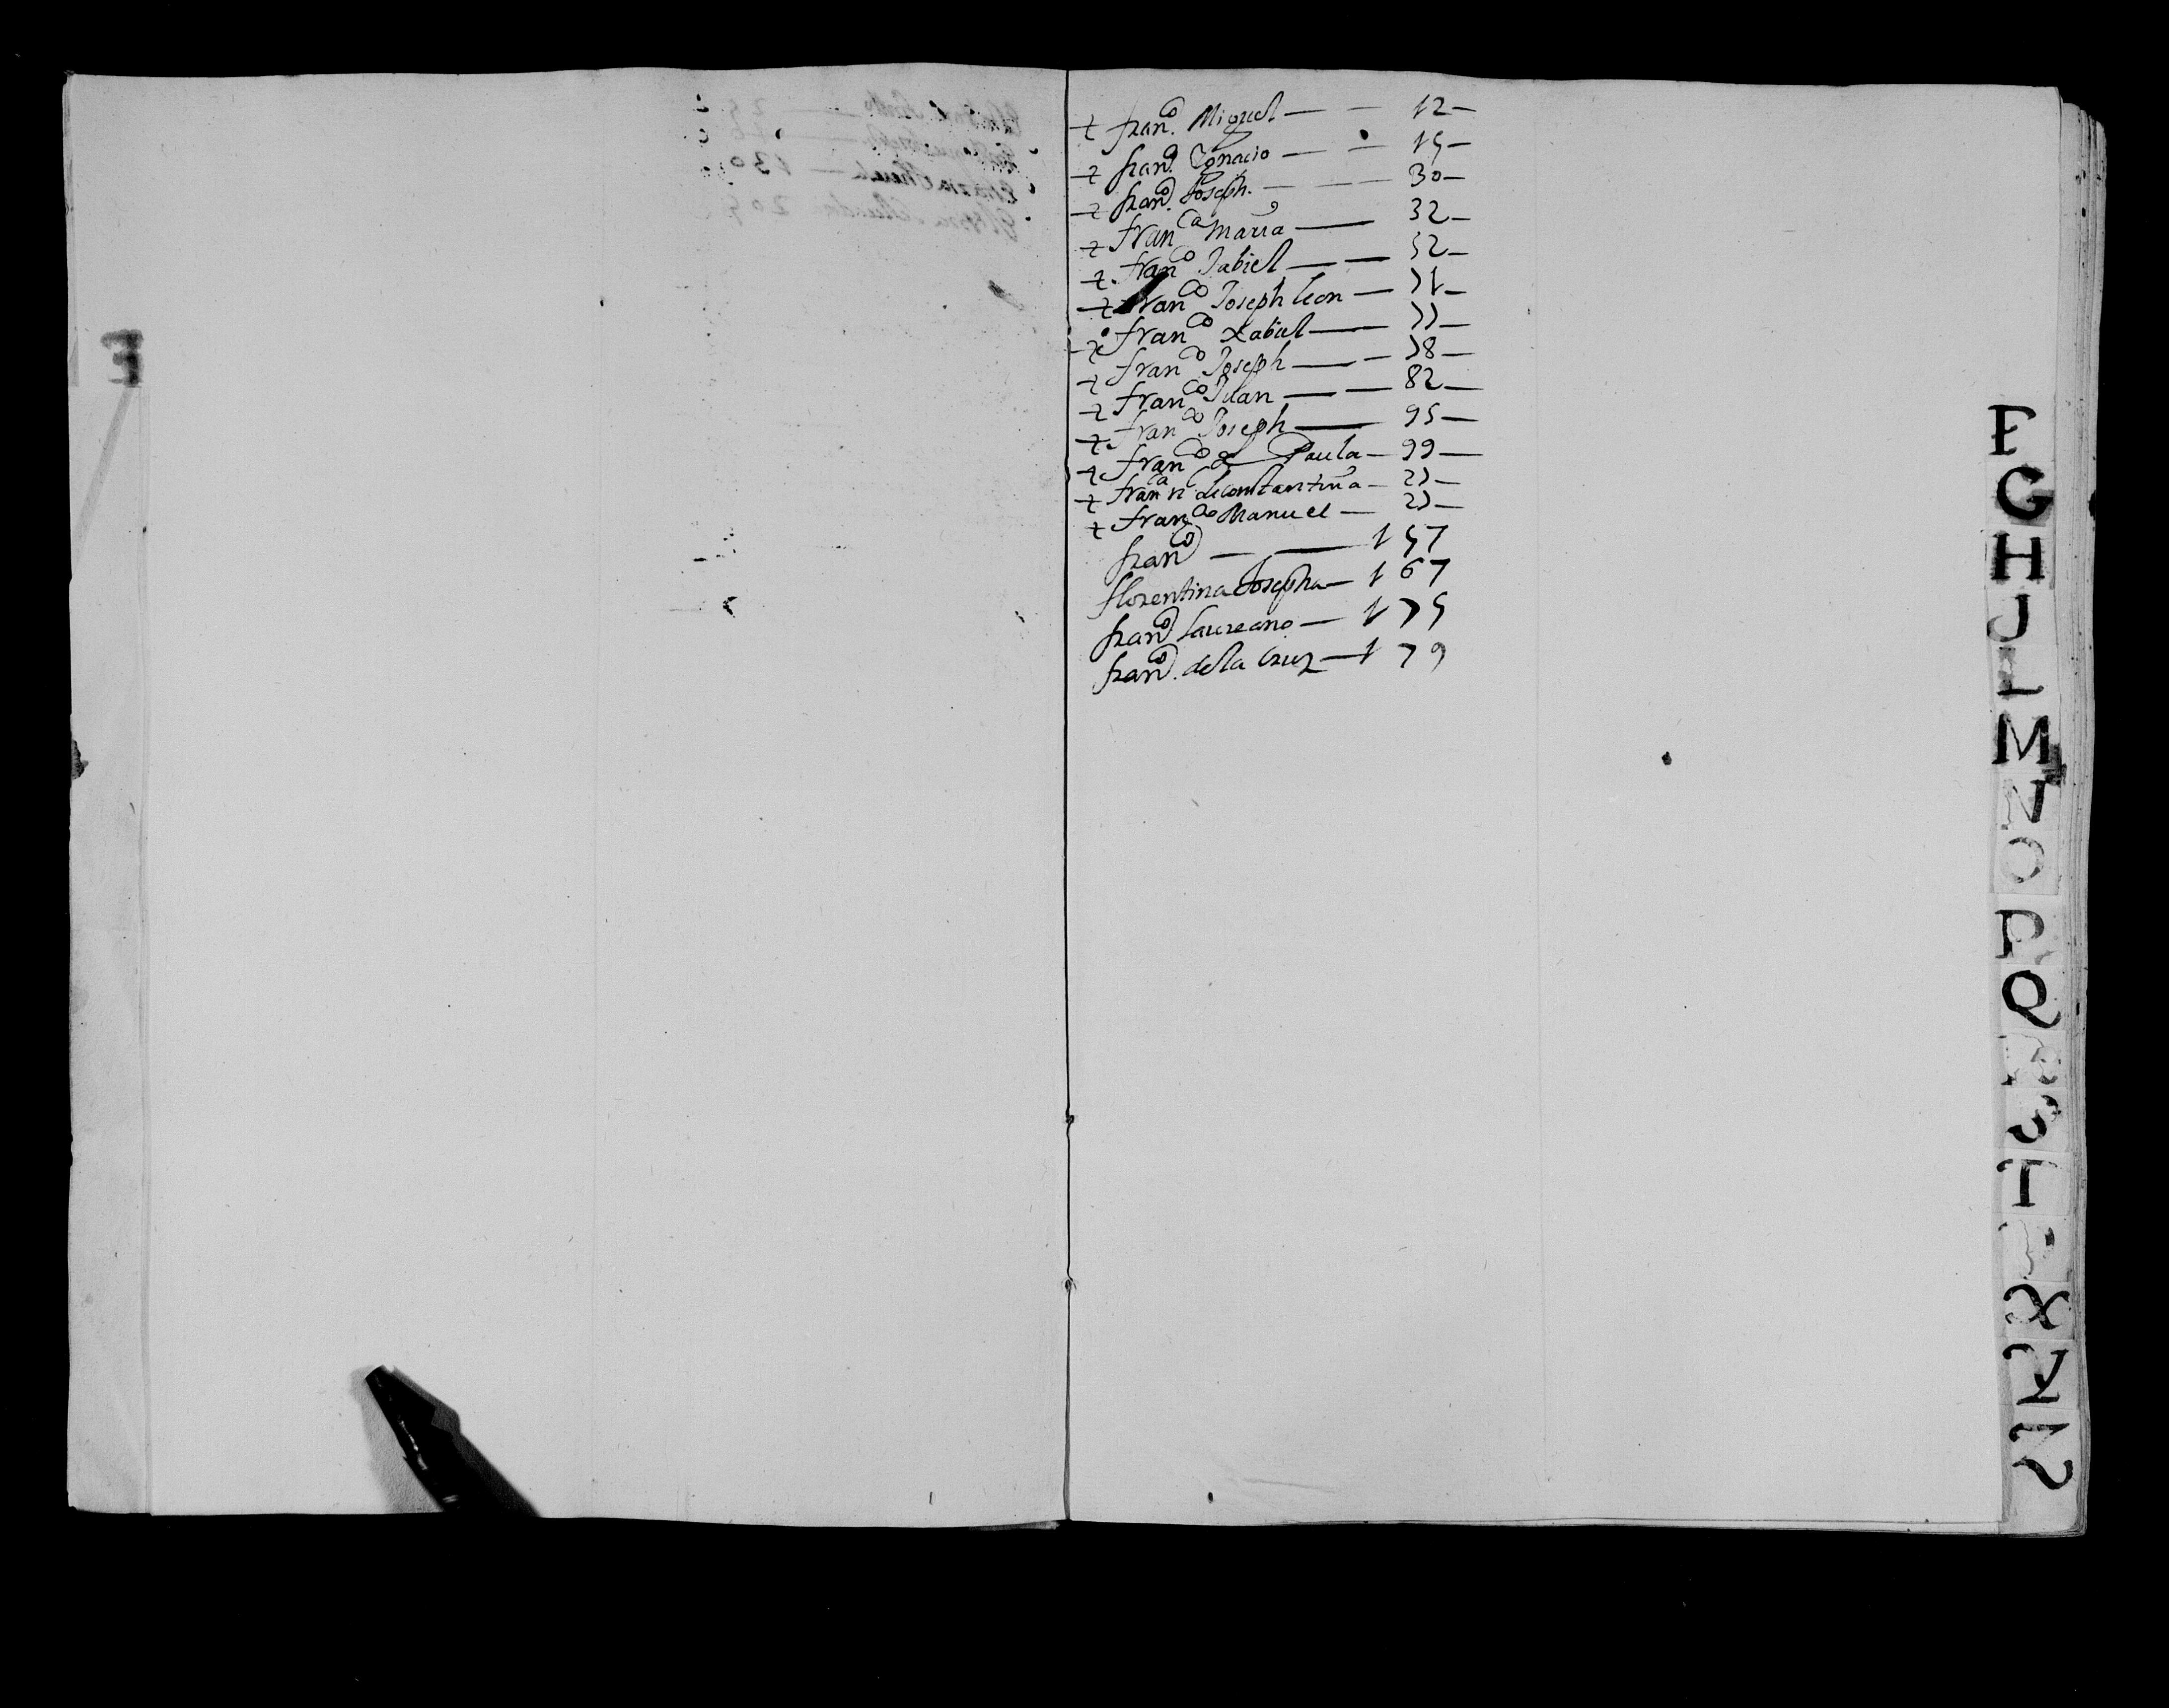 + fran.co Miguel — — 12 —
+ fran.co Ignacio — — 15 —
+ fran.co Joseph. — — 30 —
+ fran.ca maria — 32 —
+ fran.co Jabiel — — 52 —
+ fran.co Joseph leon — 71 —
+ fran.co Xabiel — 77 —
+ fran.co Joseph — — 78 —
+ fran.co Juan — — 82 —
+ fran.co Joseph — 95 —
+ fran.co de Paula — 99 —
+ fran.ca de constantina — 27 —
+ fran.co Manuel — 27 —
fran.co — — 157
florentina Josepha — 167
fran.co laureano — 175
fran.co de la Cruz — 179
F
G
H
J
L
M
N
O
P
Q
S
T
X
Y
Z